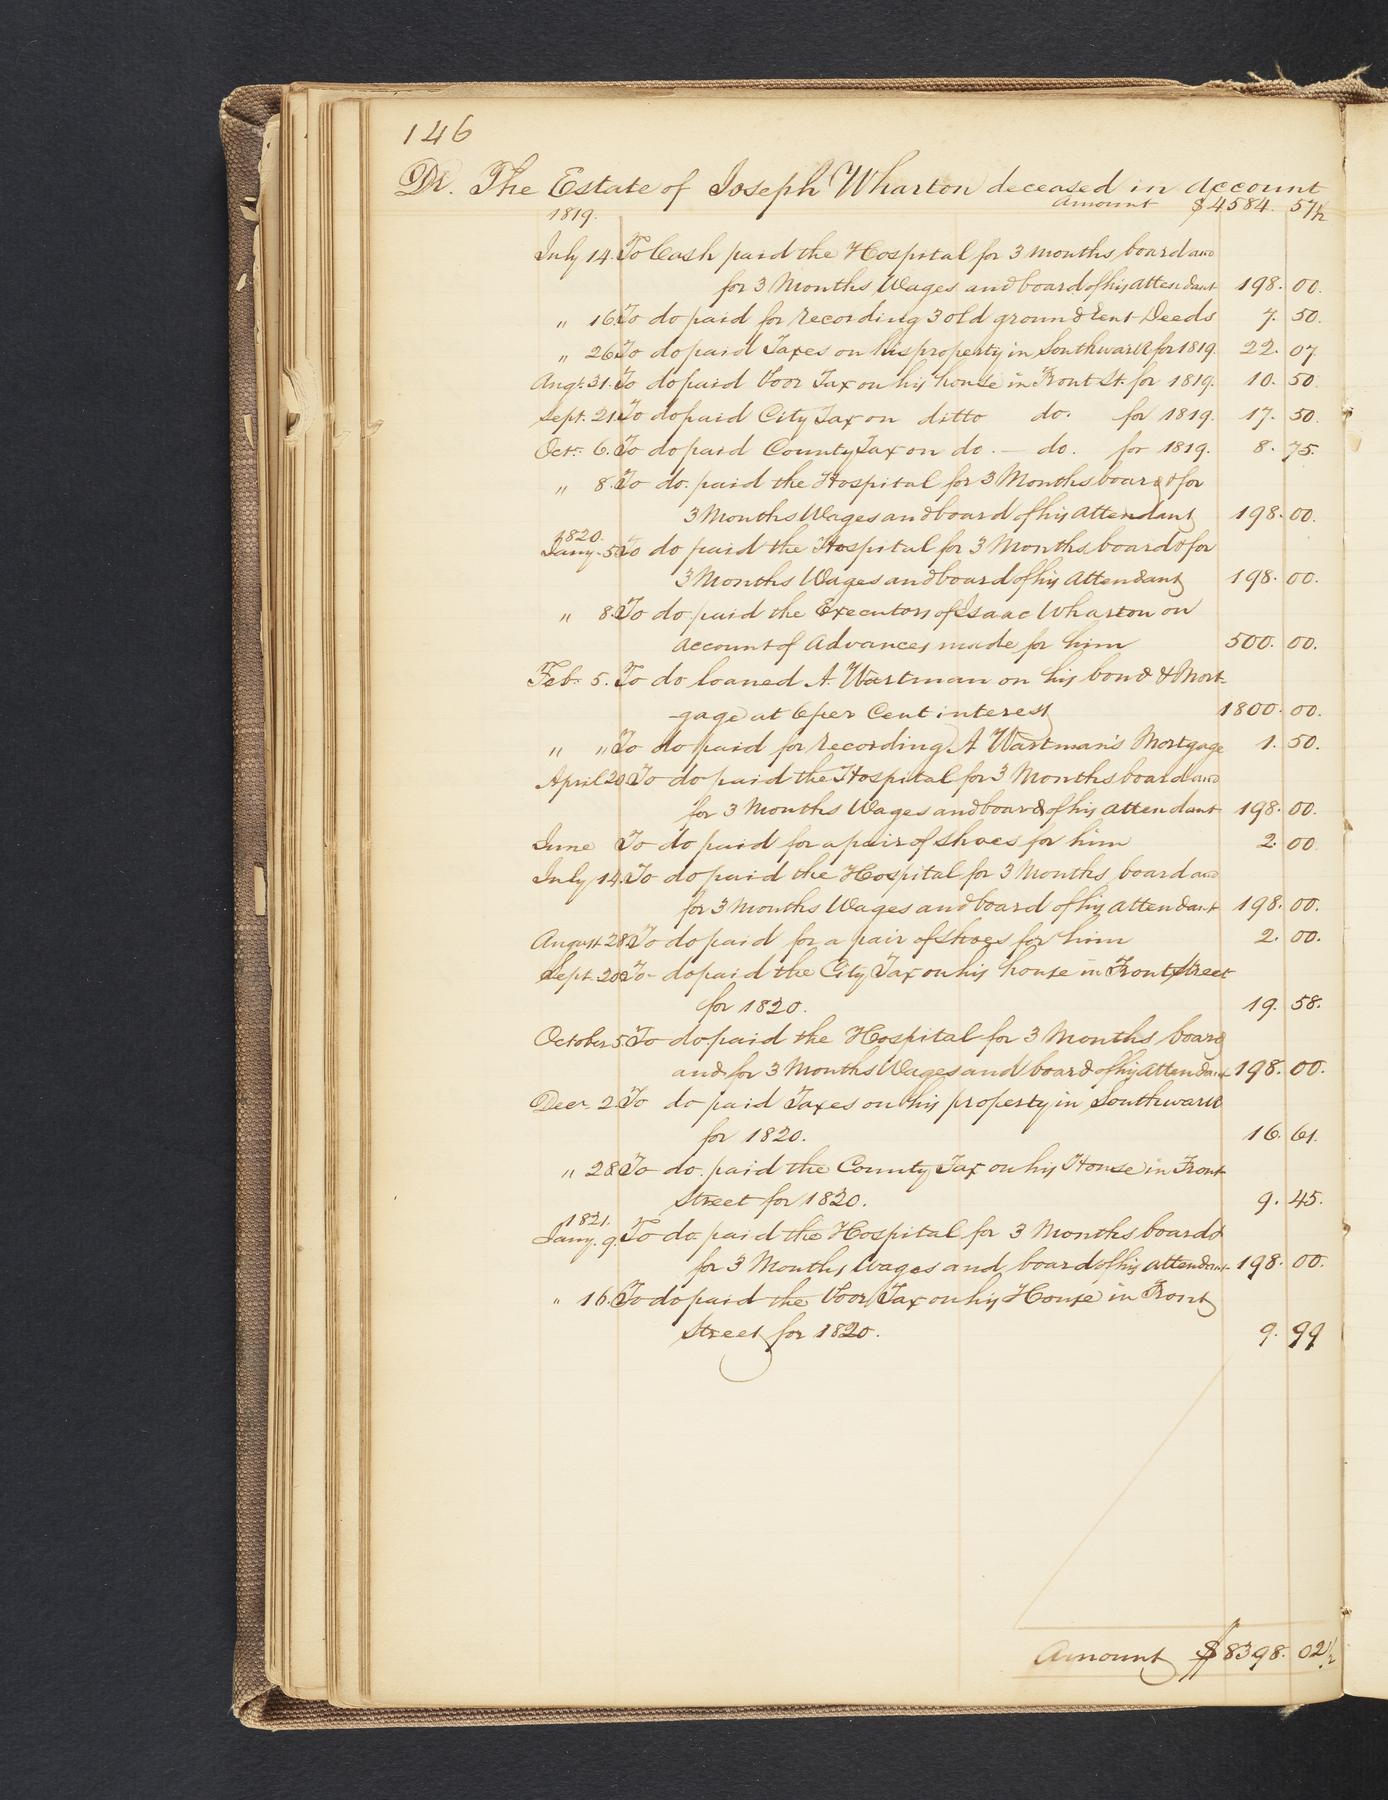 146
Dr. The Estate of Joseph Wharton deceased in account
1819. Amount $4584. 57½
July 14. To Cash paid the Hospital for 3 months board and
for 3 Months Wages and board of his attendant 198. 00.
" 16. To do paid for recording 3 old ground Rent Deeds 7. 50.
" 26 To do paid Taxes on his property in Southwark for 1819. 22. 07
Augt. 31. To do paid Poor Tax on his house in Front St. for 1819. 10. 50
Sept. 21. To do paid City Tax on ditto do. for 1819. 17. 50.
Octr. 6. To do paid County Tax on do. — do. for 1819. 8. 75.
" 8. To do. paid the Hospital for 3 Months board & for
3 Months Wages and board of his attendant 198. 00.
1820.
Jany. 5. To do paid the Hospital for 3 Months board & for
3 Months Wages and board of his Attendant 198. 00.
" 8. To do paid the Executors of Isaac Wharton on
account of Advances made for him 500. 00.
Feb. 5. To do loaned A. Wartman on his bond & Mort-
-gage at 6 per Cent interest 1800. 00.
" " To do paid for recording A Wartman's Mortgage 1. 50.
April 20 To do paid the Hospital for 3 Months board and
for 3 Months Wages and board of his attendant 198. 00.
June To do paid for a pair of shoes for him 2. 00
July 14. To do paid the Hospital for 3 Months board and
for 3 Months Wages and board of his attendant 198. 00.
August 28. To do paid for a pair of shoes for him 2. 00.
Sept. 20 To do paid the City Tax on his house in Front Street
for 1820. 19. 58.
October 5. To do paid the Hospital for 3 Months board
and for 3 Months Wages and board of his attendant 198. 00.
Decr. 2. To do paid Taxes on his property in Southwark
for 1820. 16. 61.
" 28 To do. paid the County Tax on his House in Front
Street for 1820. 9. 45.
1821.
Jany. 9. To do paid the Hospital for 3 Months board &
for 3 Months Wages and board of his attendant 198. 00.
" 16. To do paid the Poor Tax on his House in Front
Street for 1820. 9. 99
Amount $8398. 02½